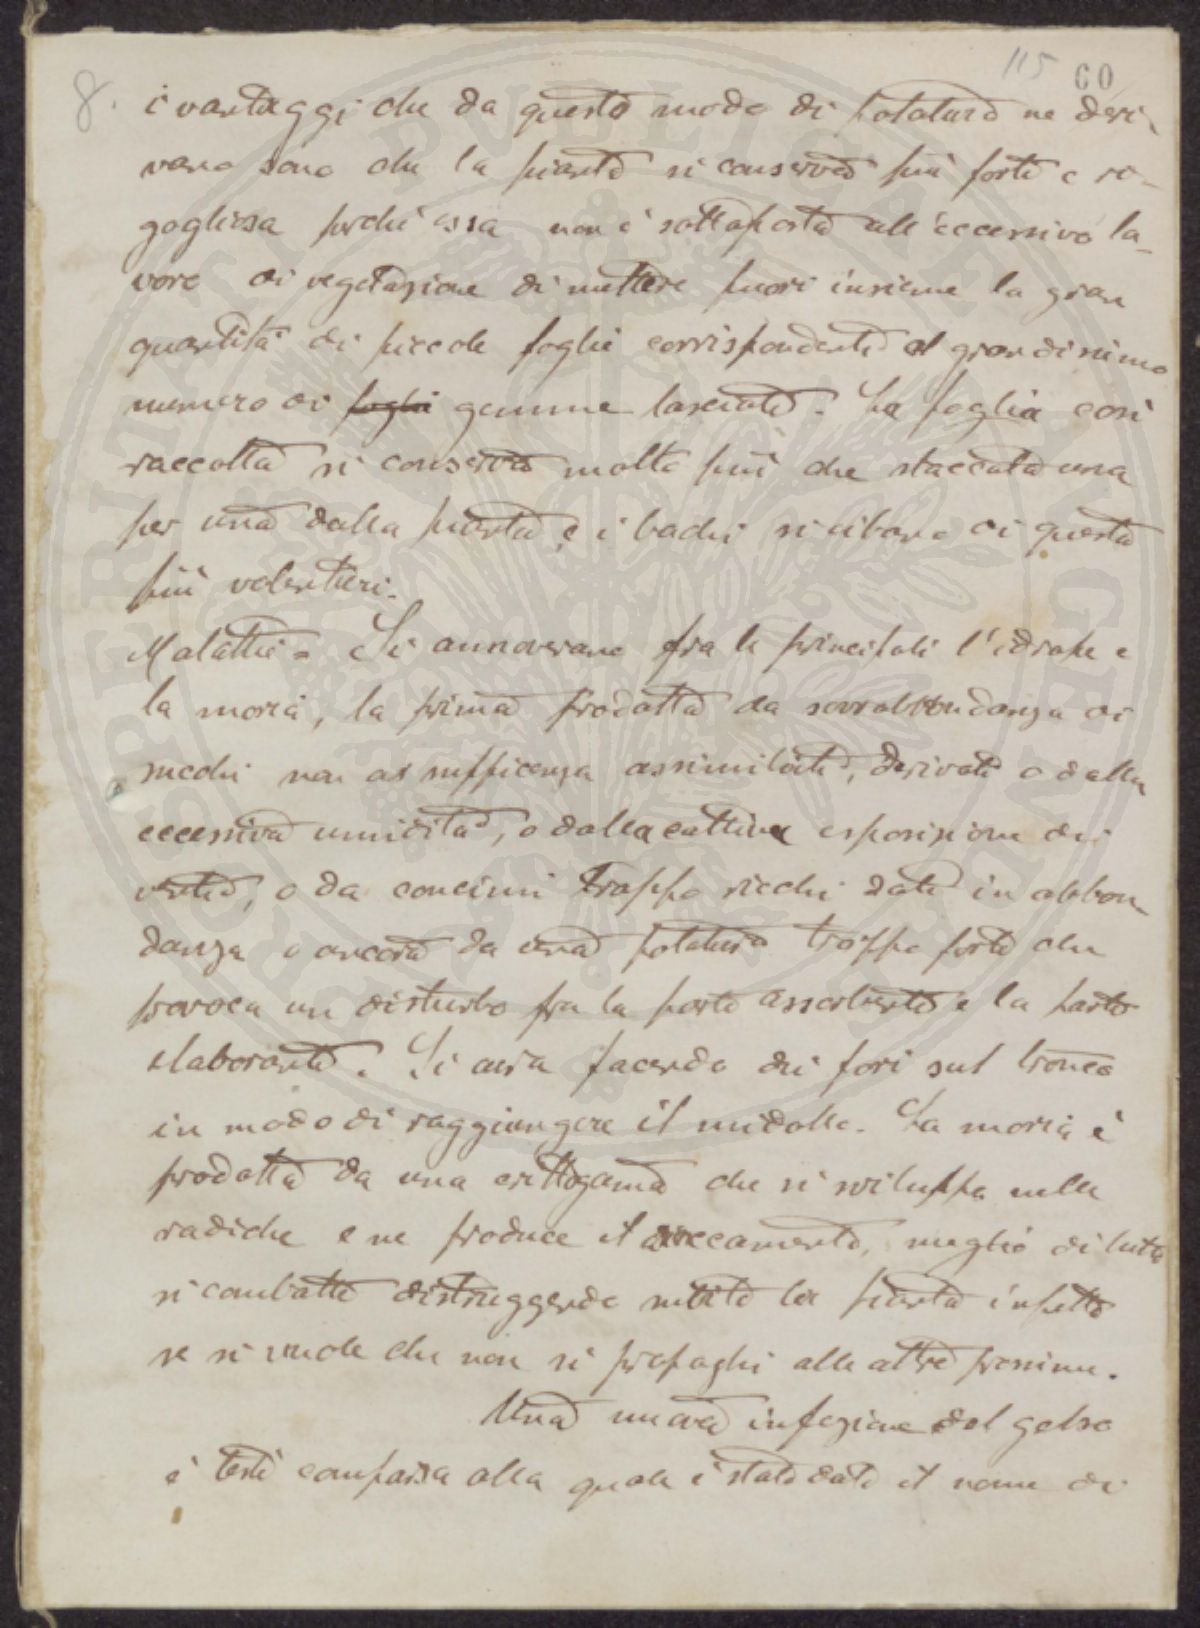 8.
115 60
i vantaggi che da questo modo di potatura ne deri-
vano sono che la pianta si conserva più forte e ri-
gogliosa perché essa non è sottoposta all'eccessivo la-
voro di vegetazione di mettere fuori insieme la gran
quantità di piccole foglie corrispondente al grandissimo
numero di foglie gemme lasciate. La foglia così
raccolta si conserva molto più che staccata una
per una dalla pianta, e i bachi si cibano di questa
più volentieri.
Malattie = Si annoverano fra le principali l'idrope e
la moria, la prima prodotta da sovrabbondanza di
succhi non as sufficenza assimilati, derivati o dalla
eccessiva umidità, o dalla cattiva esposizione dei
venti, o da concimi troppo ricchi dati in abbon
danza o ancora da una potatura troppo forte che
provoca un disturbo fra la parte assorbente e la parte
elaborante. Si cura facendo dei fori sul tronco
in modo di raggiungere il midollo. La moria è
prodotta da una crittogama che si sviluppa nelle
radiche e ne produce il seccamento, meglio di tutto
si combatte distruggendo subito la pianta infetta
se si vuole che non si propaghi alle altre prossime.
Una nuova infezione del gelso
è testè comparsa alla quale è stato dato il nome di
PROSPERITATI PUBLICAE AUGENDAE